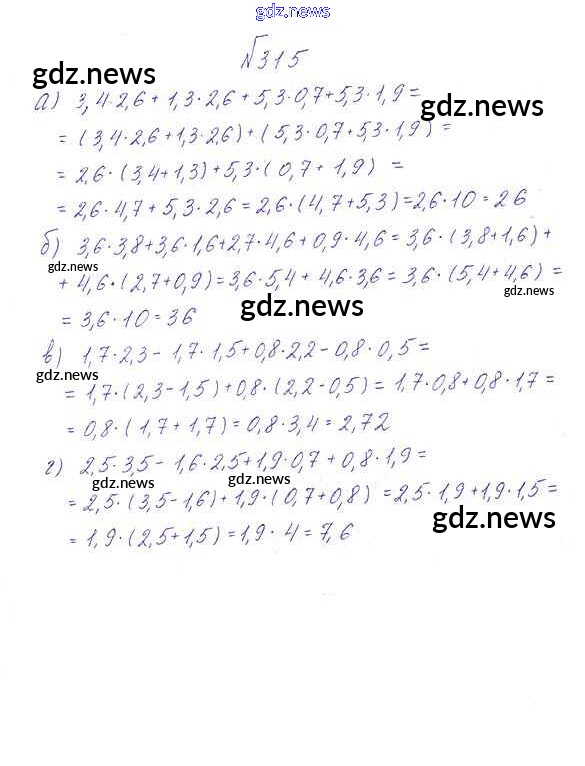 gdz.news
№315
gdz.news
а) 3,4·2,6 + 1,3·2,6 + 5,3·0,7 + 5,3·1,9 =
gdz.news
= (3,4·2,6 + 1,3·2,6) + (5,3·0,7 + 5,3·1,9) =
= 2,6·(3,4 + 1,3) + 5,3·(0,7 + 1,9) =
= 2,6·4,7 + 5,3·2,6 = 2,6·(4,7 + 5,3) = 2,6·10 = 26
б) 3,6·3,8 + 3,6·1,6 + 2,7·4,6 + 0,9·4,6 = 3,6·(3,8 + 1,6) +
gdz.news
+ 4,6·(2,7 + 0,9) = 3,6·5,4 + 4,6·3,6 = 3,6·(5,4 + 4,6) =
gdz.news
gdz.news
= 3,6·10 = 36
в) 1,7·2,3 - 1,7·1,5 + 0,8·2,2 - 0,8·0,5 =
gdz.news
= 1,7·(2,3 - 1,5) + 0,8·(2,2 - 0,5) = 1,7·0,8 + 0,8·1,7 =
= 0,8·(1,7 + 1,7) = 0,8·3,4 = 2,72
г) 2,5·3,5 - 1,6·2,5 + 1,9·0,7 + 0,8·1,9 =
gdz.news
gdz.news
= 2,5·(3,5 - 1,6) + 1,9·(0,7 + 0,8) = 2,5·1,9 + 1,9·1,5 =
gdz.news
= 1,9·(2,5 + 1,5) = 1,9·4 = 7,6